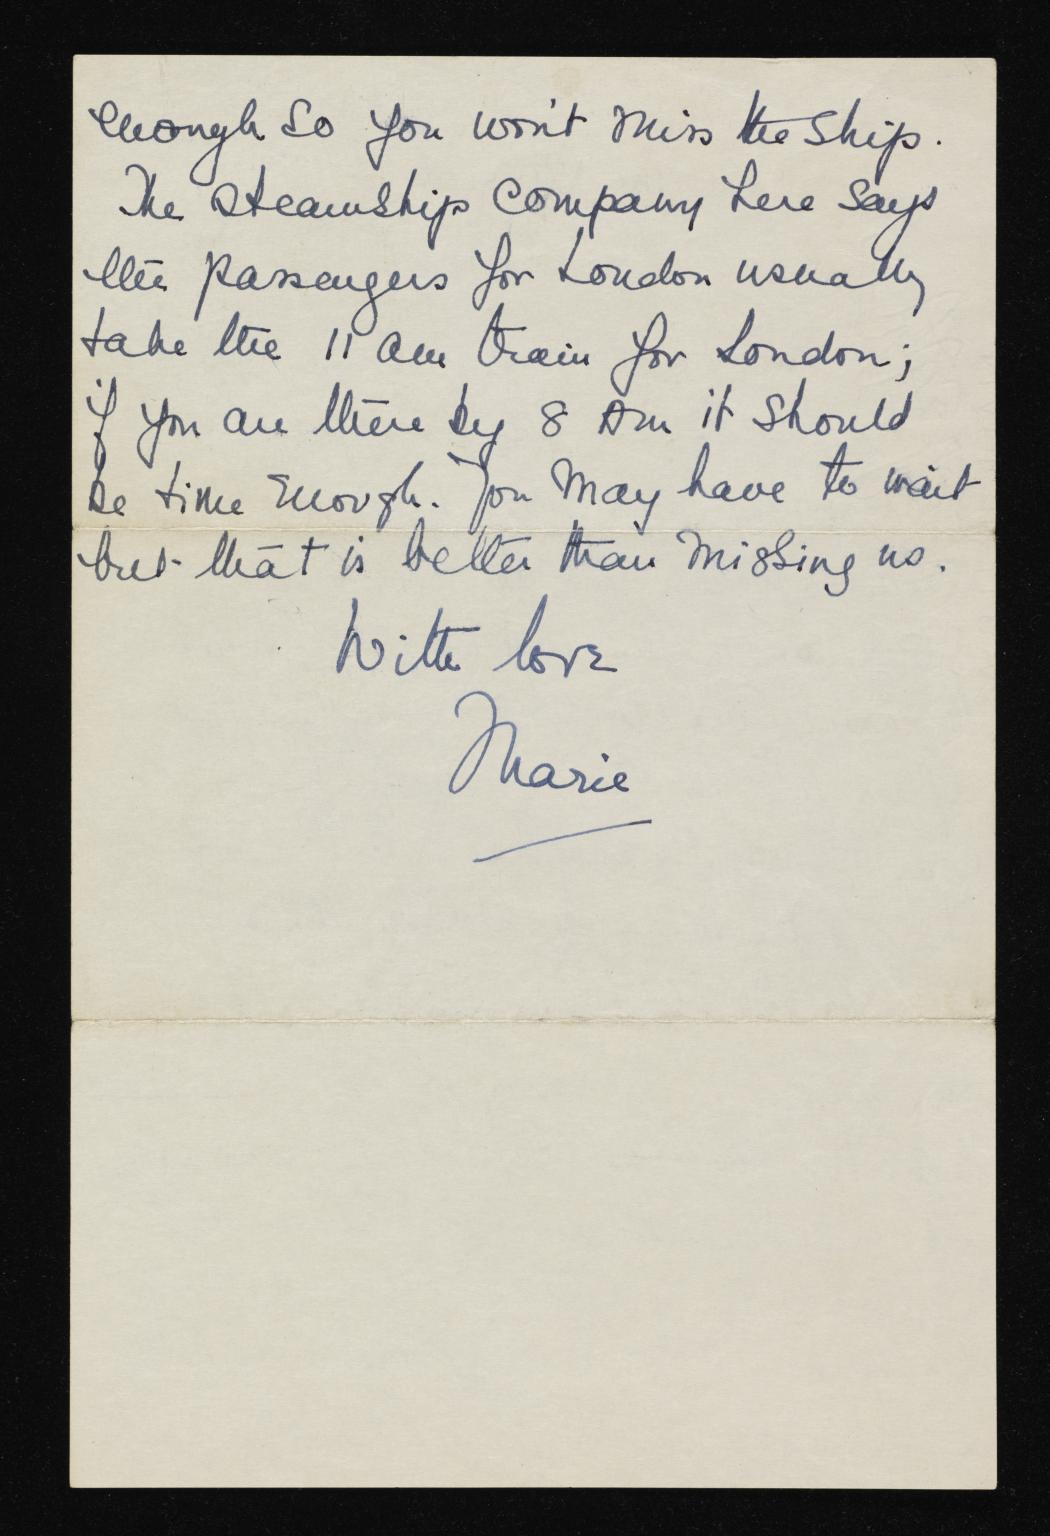 enough so you won't miss the ship.
The steamship company here says
the passengers for London usually
take the 11 am train for London;
if you are there by 8 Am it should
be time enough. You may have to wait
but that is better than missing us.
With love
Marie